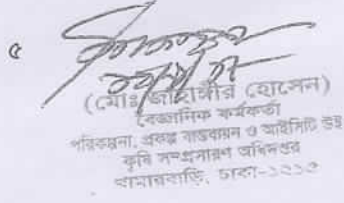 ৫
(মোঃ জাহাঙ্গীর হোসেন)
বৈজ্ঞানিক কর্মকর্তা
পরিকল্পনা, প্রকল্প বাস্তবায়ন ও আইসিটি উইং
কৃষি সম্প্রসারণ অধিদপ্তর
খামারবাড়ি, ঢাকা-১২১৫